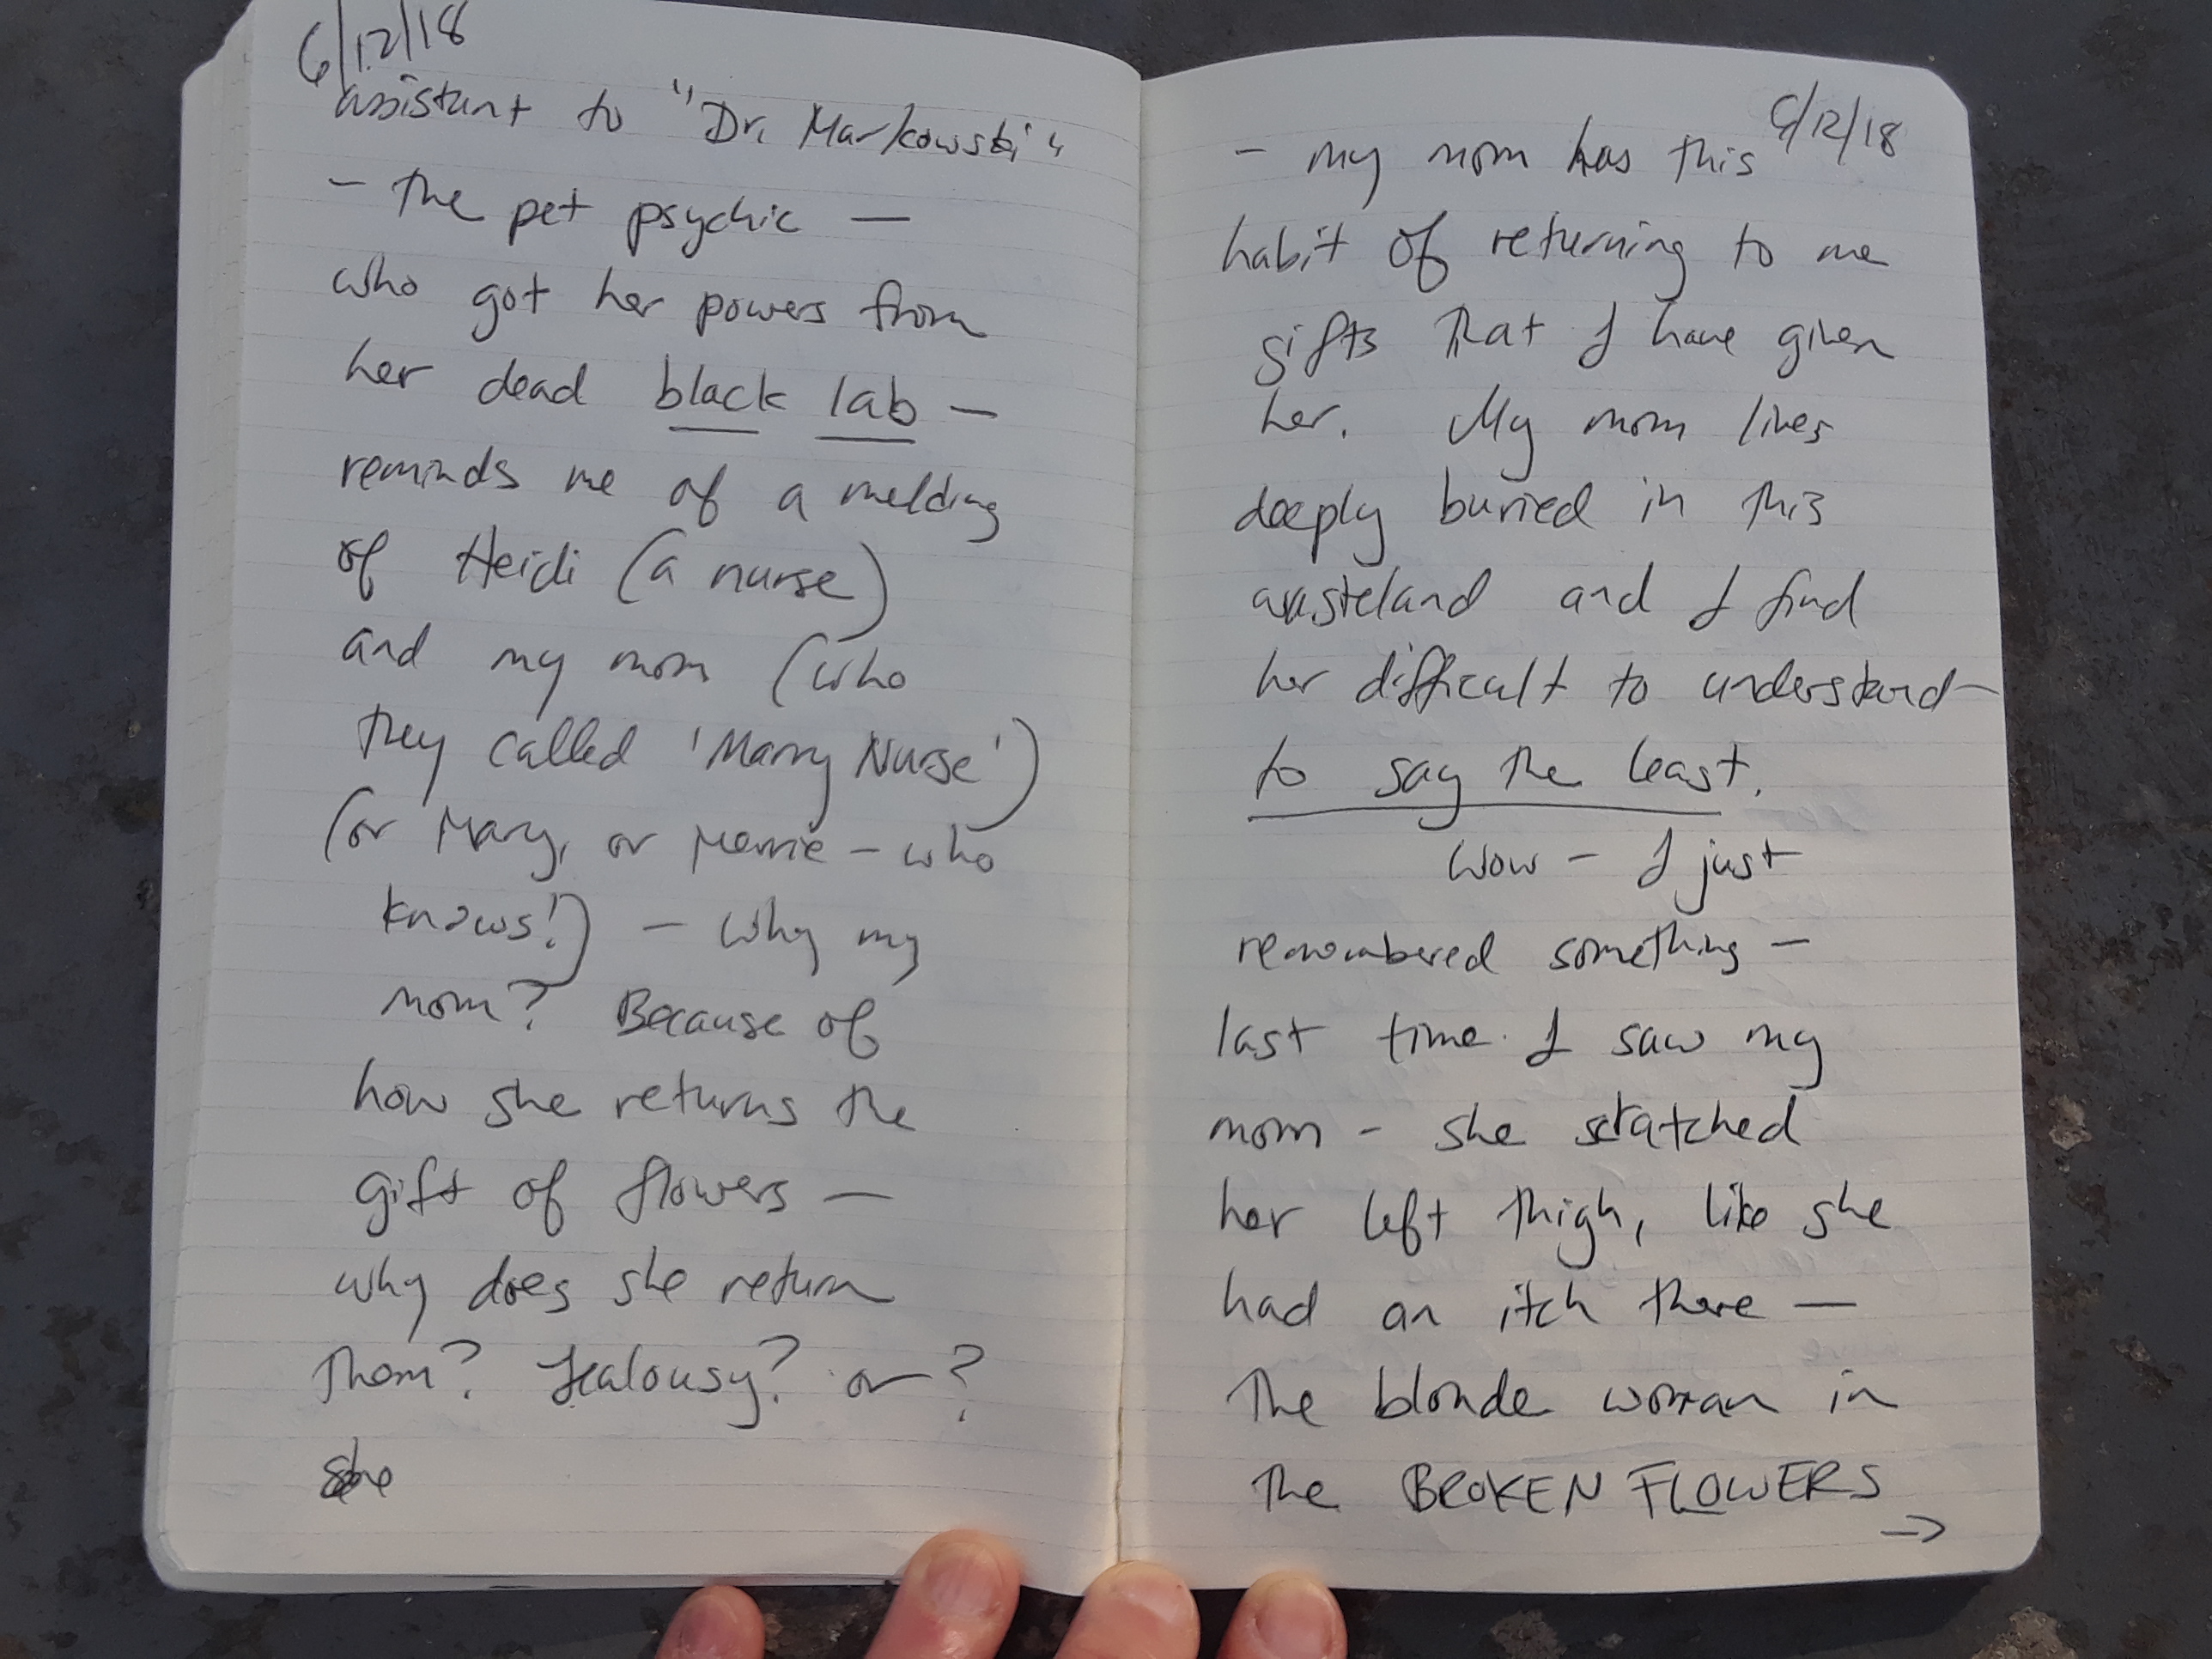 6/12/18
assistant to "Dr. Markowski"
- the pet psychic —
who got her powers from
her dead black lab —
reminds me of a melding
of Heidi (a nurse)
and my mom (who
they called 'Marry Nurse')
(or Mary, or Merrie - who
knows!) - why my
mom? Because of
how she returns the
gift of flowers —
why does she return
them? Jealousy? or?
She
6/12/18
- my mom has this
habit of returning to me
gifts that I have given
her. My mom lives
deeply buried in this
wasteland and I find
her difficult to understand—
to say the least.
Wow - I just
remembered something —
last time I saw my
mom - she scratched
her left thigh, like she
had an itch there —
The blonde woman in
the BROKEN FLOWERS
→